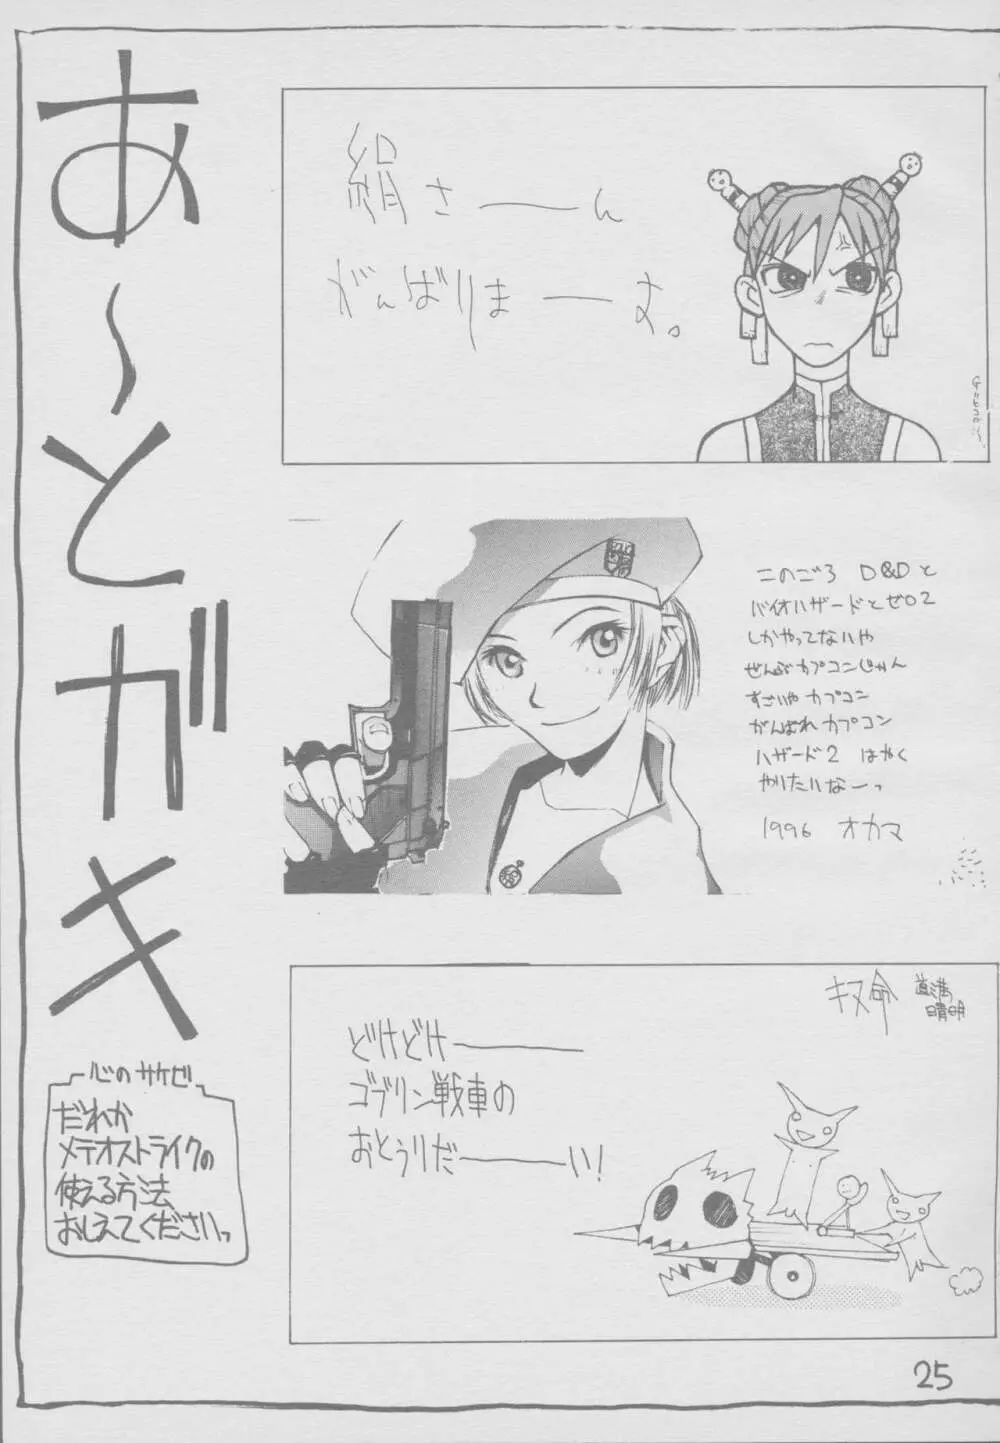 あ～とガキ
絹さーーん
がんばりまーーす。
このごろ D&Dと
バイオハザードとゼロ2
しかやってないや
ぜんぶカプコンじゃん
すごいやカプコン
がんばれカプコン
ハザード2 はやく
やりたいなーっ
1996 オカマ
道満
晴明
どけどけーーー
ゴブリン戦車の
おとうりだーーーい!
心のサケビ
だれか
メテオストライクの
使える方法
おしえてくださいっ
25